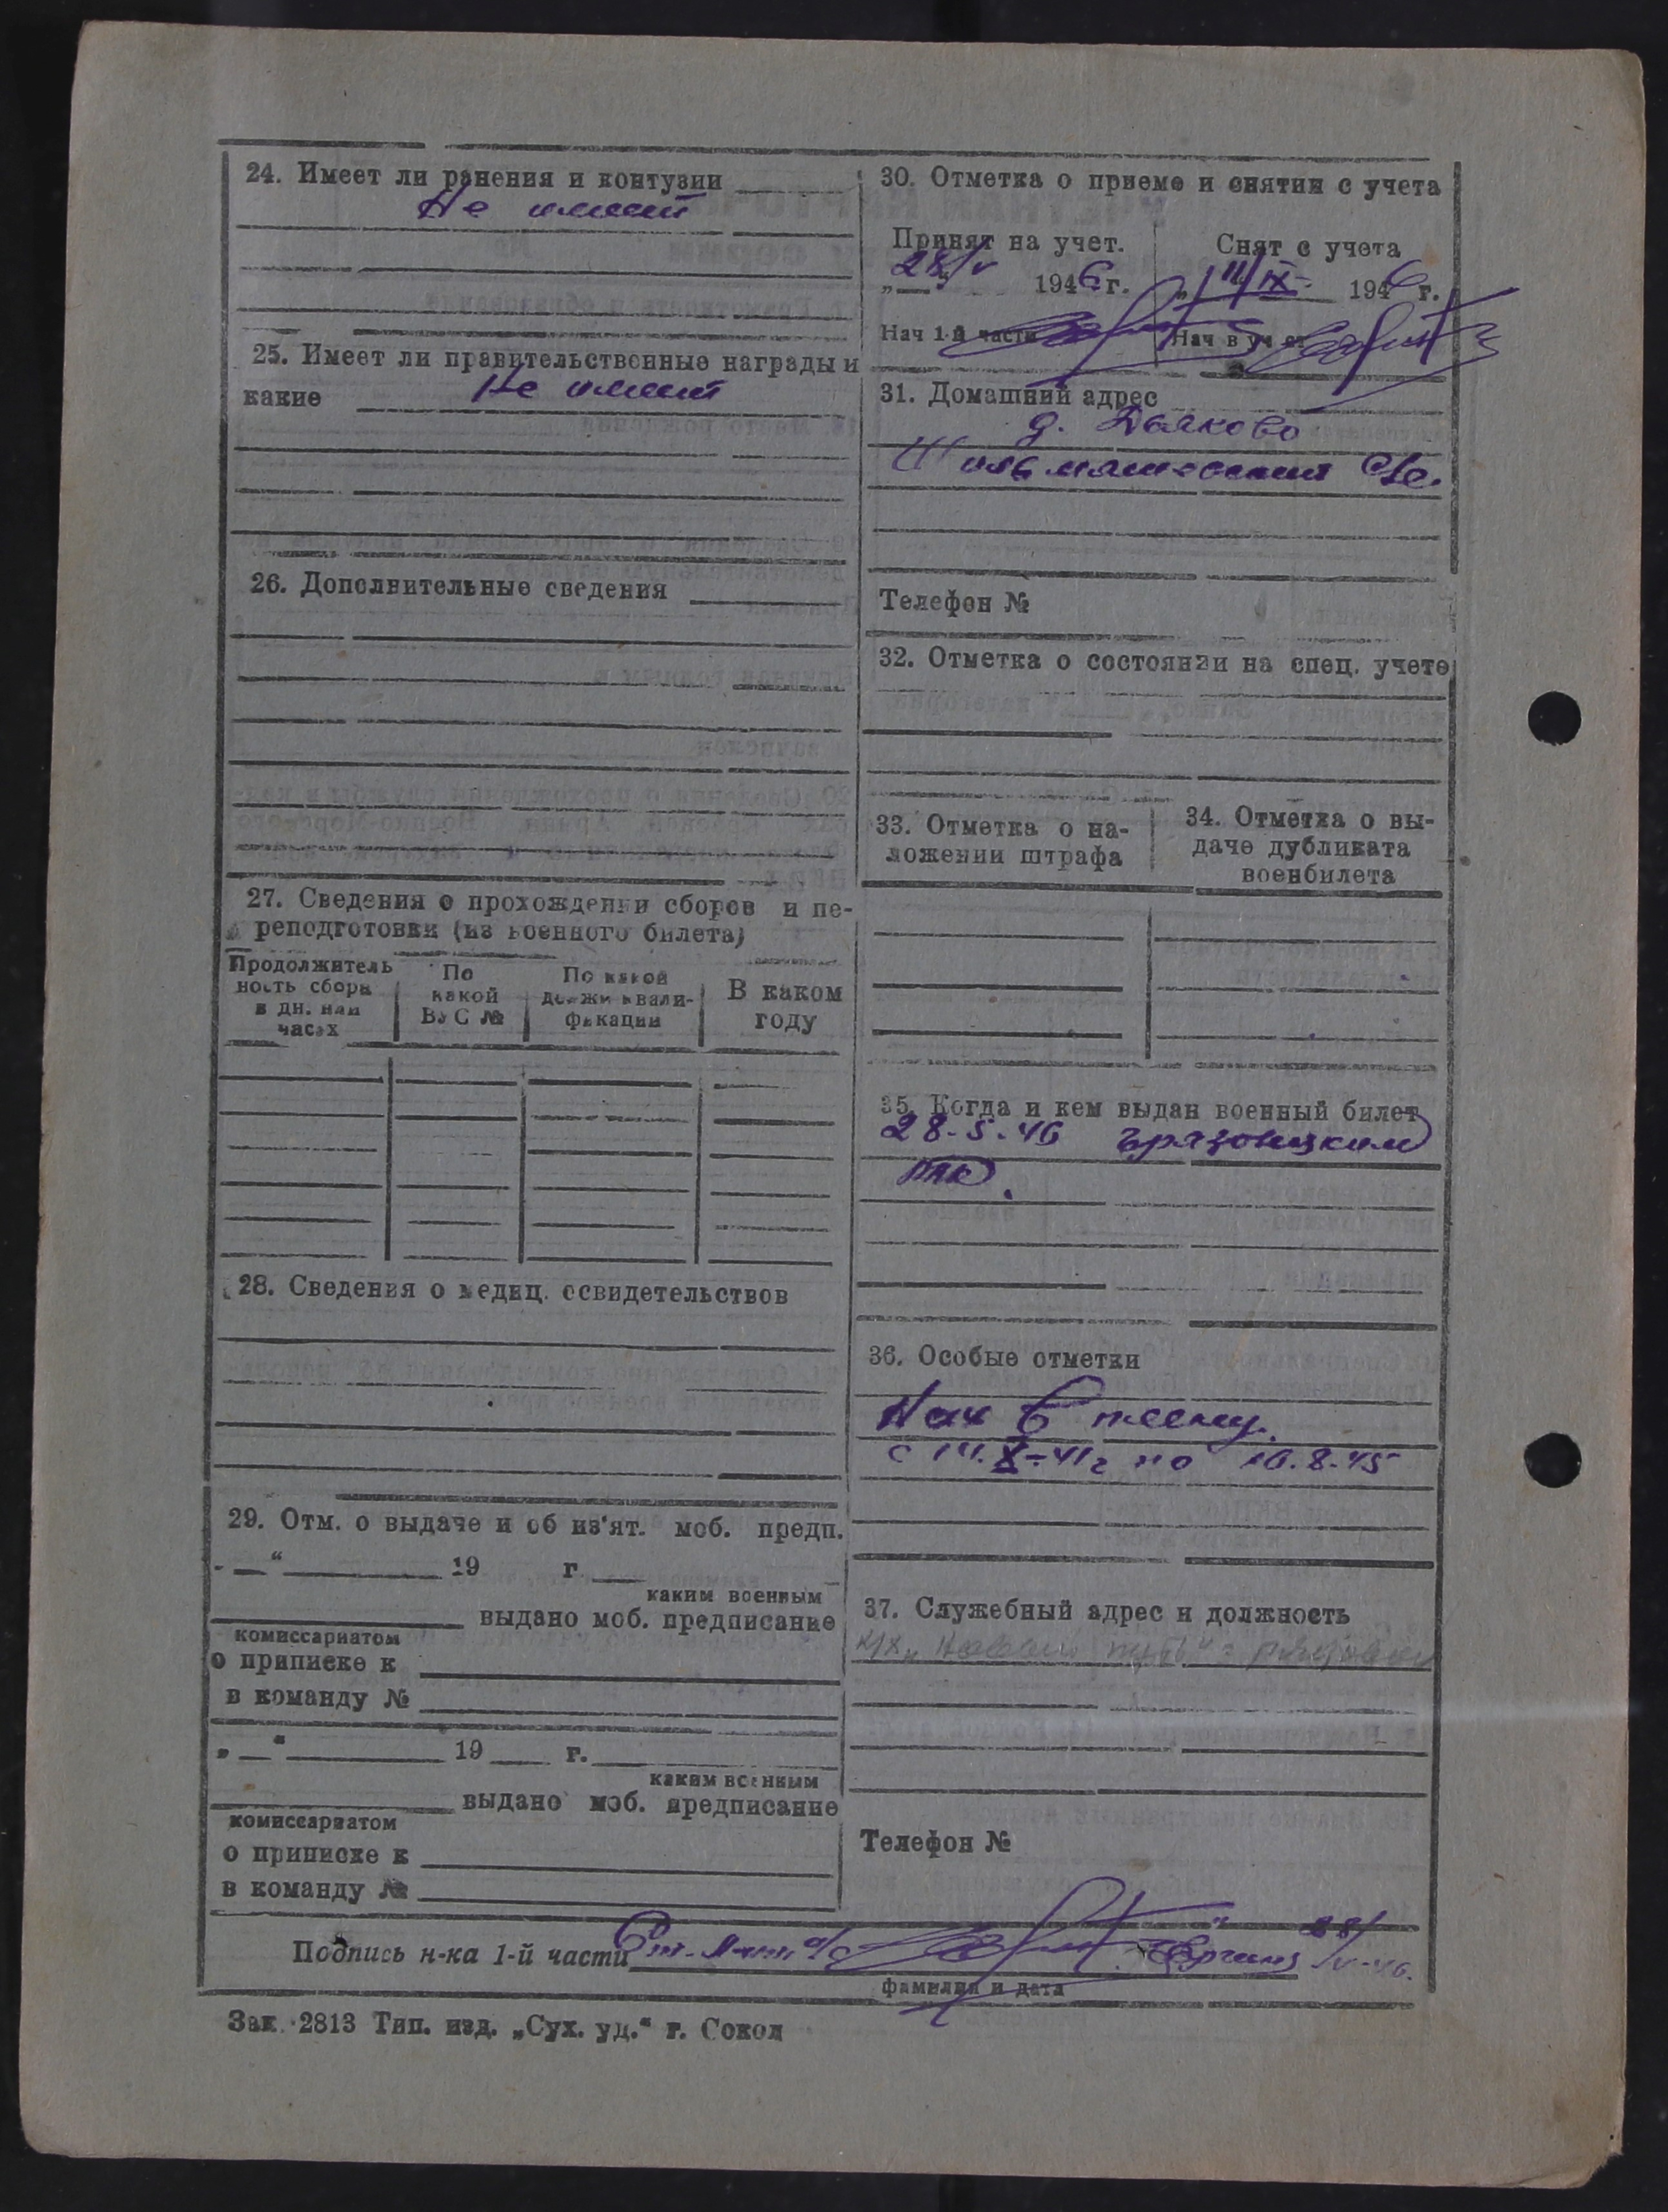 24. Имеет ли ранения и контузии
Не имеет
25. Имеет ли правительственные награды и
какие Не имеет
26. Дополнительные сведения
27. Сведения о прохождении сборов и пе-
реподготовки (из военного билета)
Продолжитель
ность сбора
в дн. или
часах
По
какой
ВУС №
По какой
должн квали-
фикации
В каком
году
28. Сведения о медиц. освидетельствов
29. Отм. о выдаче и об из'ят. моб. предп.
"—" 19 г.
каким военным
выдано моб. предписание
комиссариатом
о приписке к
в команду №
"—" 19 г.
каким военным
выдано моб. предписание
комиссариатом
о приписке к
в команду №
30. Отметка о приеме и снятии с учета
Принят на учет.
28/V 1946 г.
Нач 1-й части
Снят с учета
11/IX 1946 г.
Нач в уч ст
31. Домашний адрес
д. Дьяково
с/с.
Телефон №
32. Отметка о состоянии на спец. учете
33. Отметка о на-
ложении штрафа
34. Отметка о вы-
даче дубликата
военбилета
35. Когда и кем выдан военный билет
28-5-46 Грязовецким
РВК.
36. Особые отметки
Нах в плену.
с 14.X-41г по 10.8.45
37. Служебный адрес и должность
к/х "Новый путь"
Телефон №
Подпись н-ка 1-й части Ст. л-нт а/с 28/V-46.
фамилия и дата
Зак. 2813 Тип. изд. „Сух. уд.“ г. Сокол